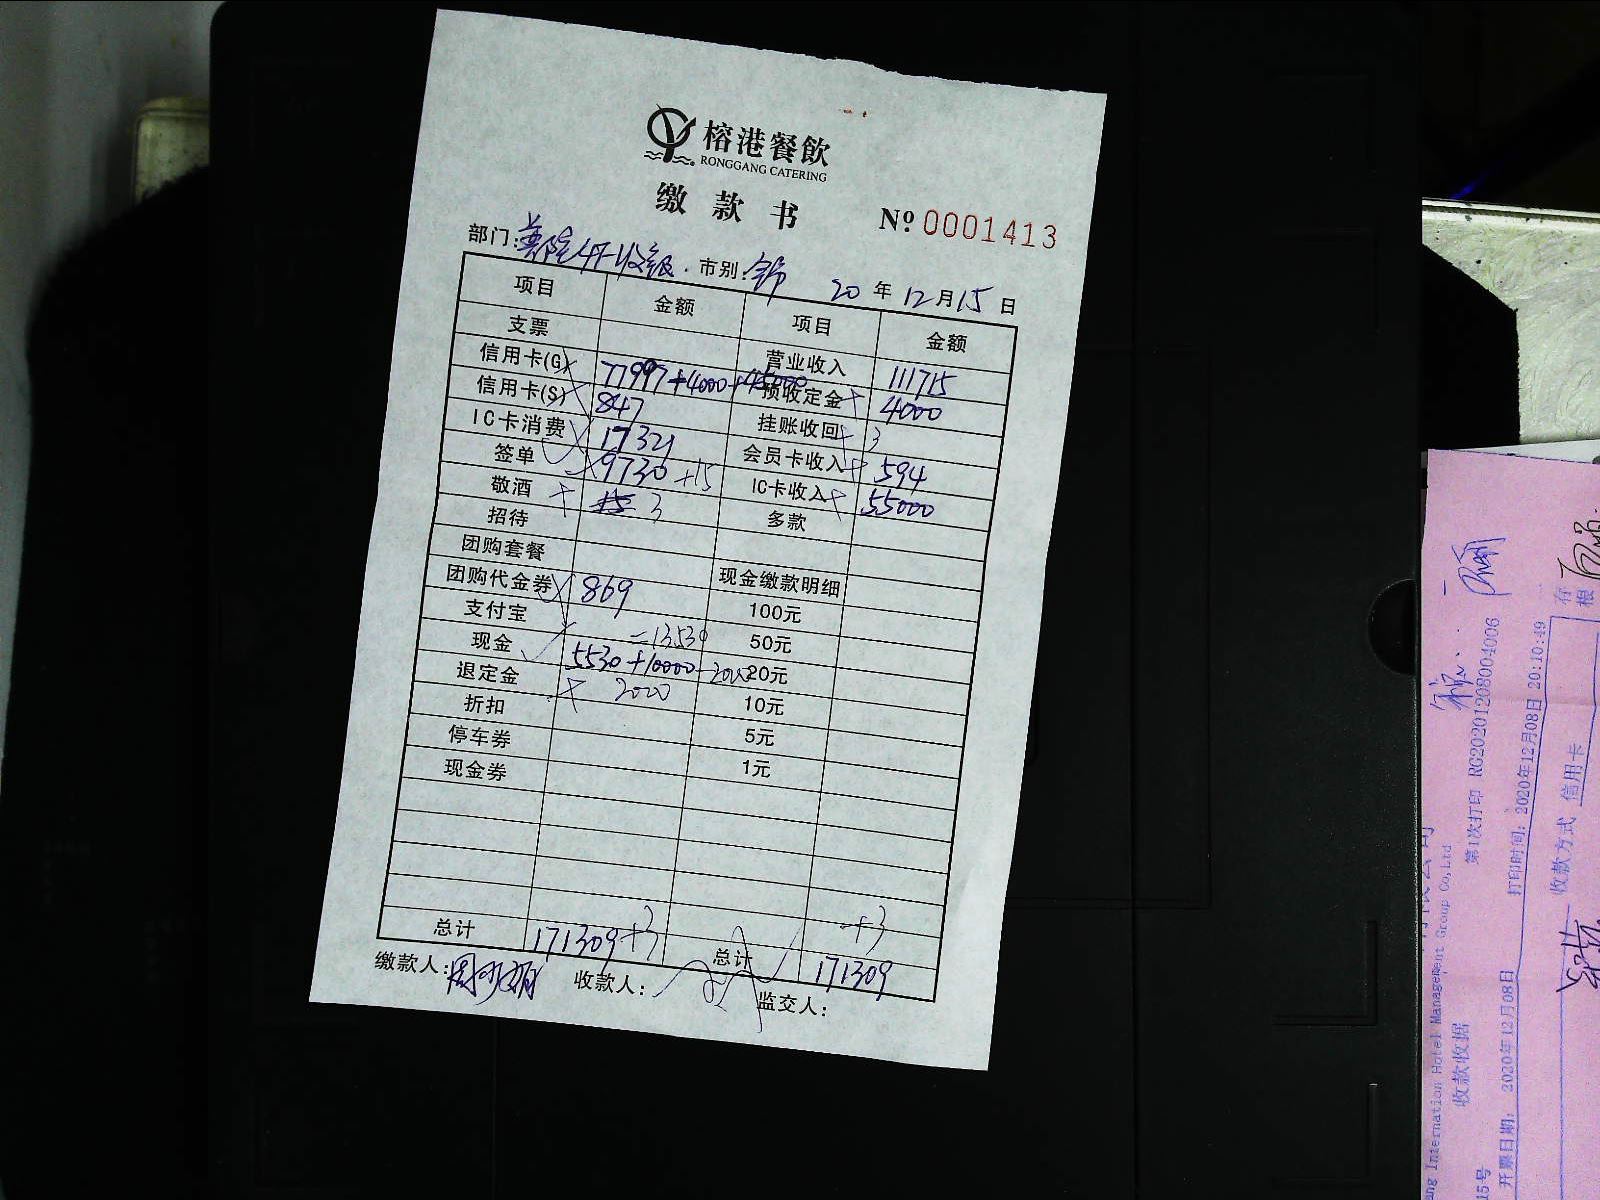 榕港餐飲
RONGGANG CATERING
缴款书
№ 0001413
部门: 市别: 20 年 12 月 15 日
项目 金额 项目 金额
支票 营业收入 111715
信用卡(G) 77997+4000+45000 预收定金 4000
信用卡(S) 847 挂账收回 3
IC卡消费 17321 会员卡收入 594
签单 9730 +15 IC卡收入 55000
敬酒 3 多款
招待
团购套餐 现金缴款明细
团购代金券 869 100元
支付宝 =13530 50元
现金 5530+10000-2000 20元
退定金 2000 10元
折扣 5元
停车券 1元
现金券
+3
总计 171309+3 总计 171309
缴款人: 收款人: 监交人:
存根
第1次打印 RG20201208004006
打印时间: 2020年12月08日 20:10:49
收款方式 信用卡
International Hotel Management Group Co,Ltd
收款收据
开票日期: 2020年12月08日
15号